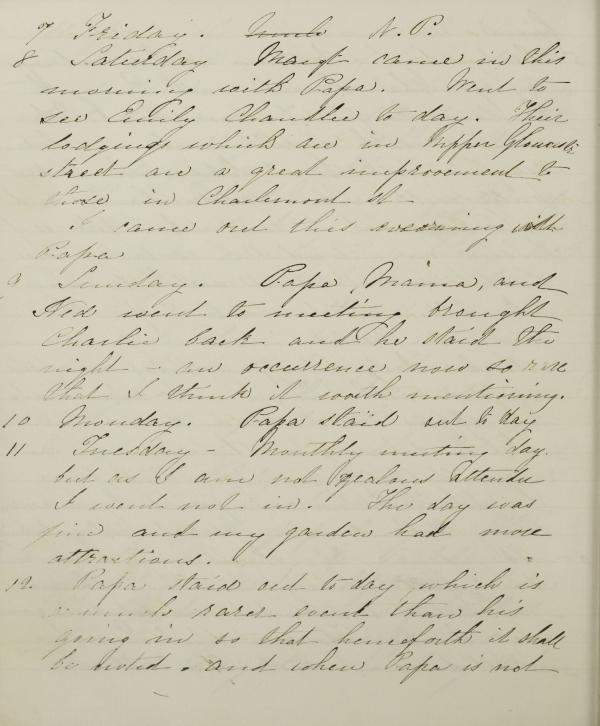 7 Friday. Uncle N. P.
8 Saturday Margt came in this
morning with Papa. Went to
see Emily Chandlee to day. Their
lodgings which are in Upper Gloucester
street are a great improvement to
those in Charlemont st
I came out this evening with
Papa
9 Sunday. Papa, Mama, and
Ned went to meeting brought
Charlie back and he staid the
night - an occurrence now so rare
that I think it worth mentioning.
10 Monday. Papa staid out to day
11 Tuesday - Monthly meeting day.
but as I am not zealous attender
I went not in. The day was
fine and my garden had more
attractions.
12. Papa staid out to day which is
a much rarer event than his
going in so that henceforth it shall
be noted. and when Papa is not